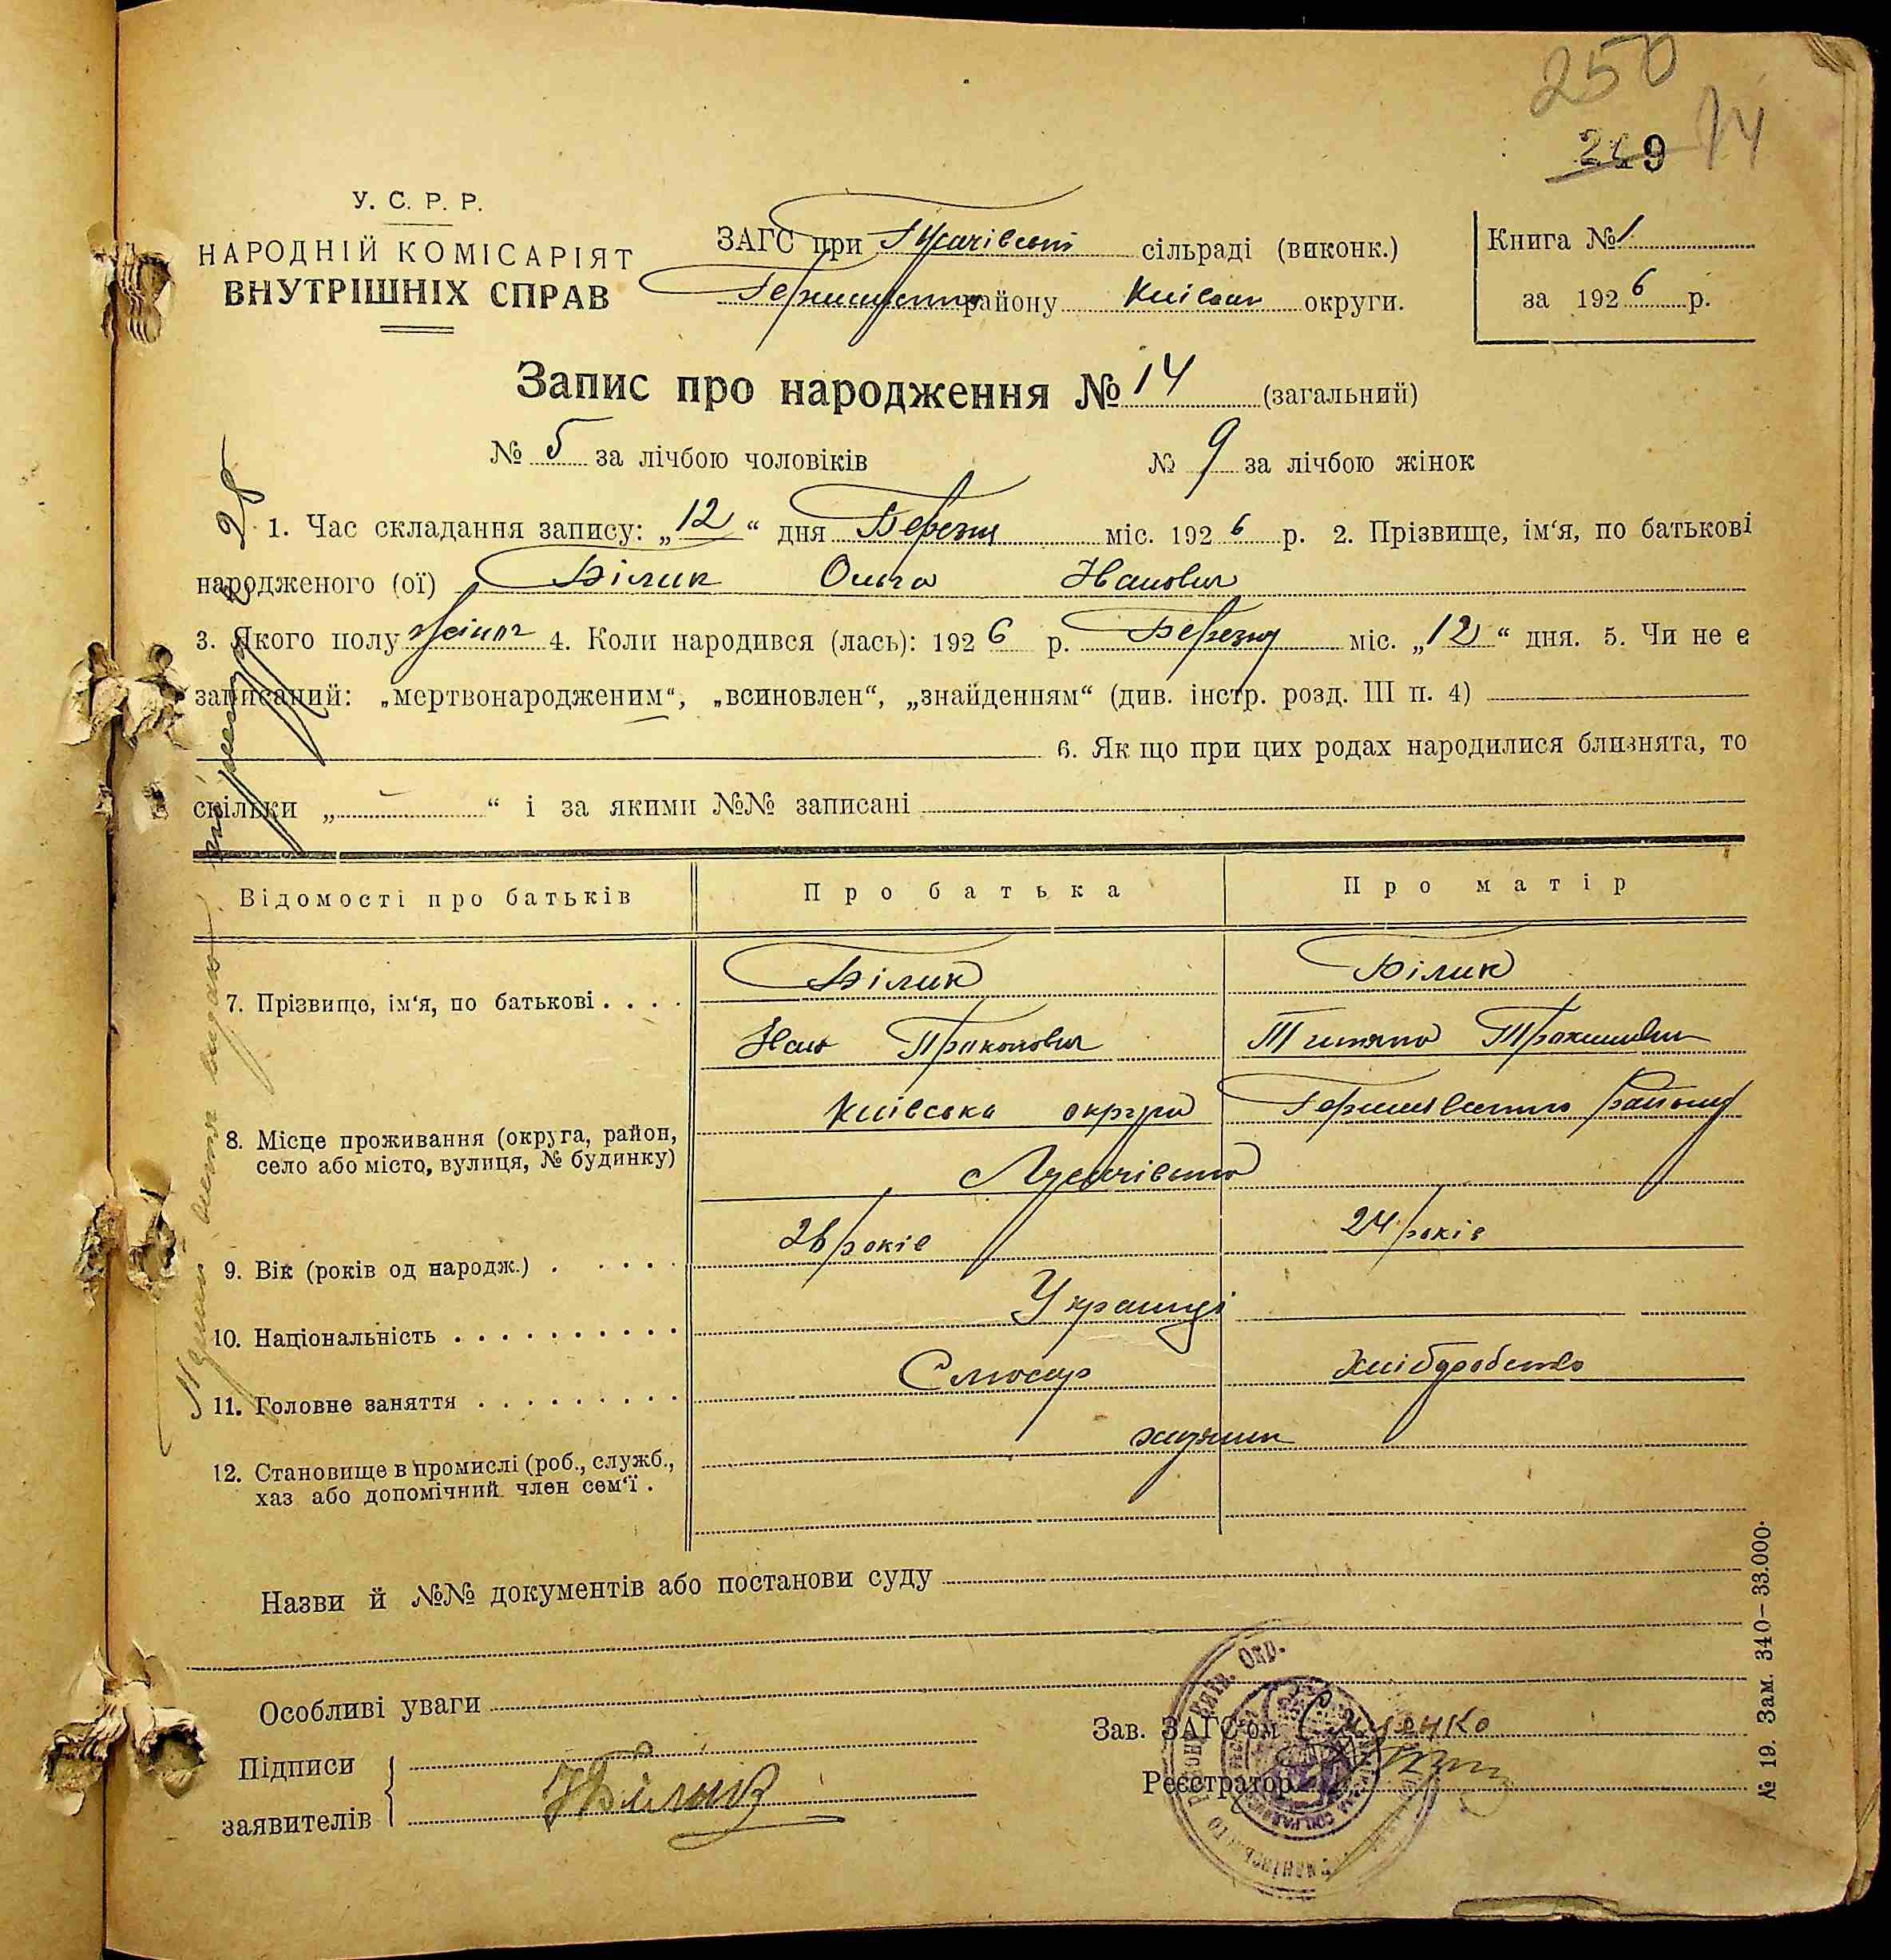 250
14
249
У. С. Р. Р.
НАРОДНІЙ КОМІСАРІЯТ
ВНУТРІШНІХ СПРАВ
ЗАГС при сільраді (виконк.)
району Київськ округи.
Книга № 1
за 1926 р.
Запис про народження № 14 (загальний)
№ 5 за лічбою чоловіків № 9 за лічбою жінок
1. Час складання запису: „12“ дня Березня міс. 1926 р. 2. Прізвище, ім‘я, по батькові
народженого (ої) Білик Ольга Івановна
3. Якого полу жіноч 4. Коли народився (лась): 1926 р. Березня міс. „12“ дня. 5. Чи не є
записаний: „мертвонародженим“, „всиновлен“, „знайденням“ (див. інстр. розд. III п. 4)
6. Як що при цих родах народилися близнята, то
скільки „ “ і за якими №№ записані
Відомості про батьків Про батька Про матір
7. Прізвище, ім‘я, по батькові . . . .
Білик Білик
Іван Прокопович Титяна
8. Місце проживання (округа, район,
село або місто, вулиця, № будинку)
Київська округа району
9. Вік (років од народж.) . . . . . 26 років 24 років
10. Національність . . . . . . . . . . Українці
11. Головне заняття . . . . . . . . . Слюсар хліборобство
12. Становище в промислі (роб., служб.,
хаз або допомічний член сем‘ї .
Назви й №№ документів або постанови суду
Особливі уваги
Підписи
заявителів
Білик
Зав. ЗАГС‘ом
Реєстратор
№ 19. Зам. 340—33.000.